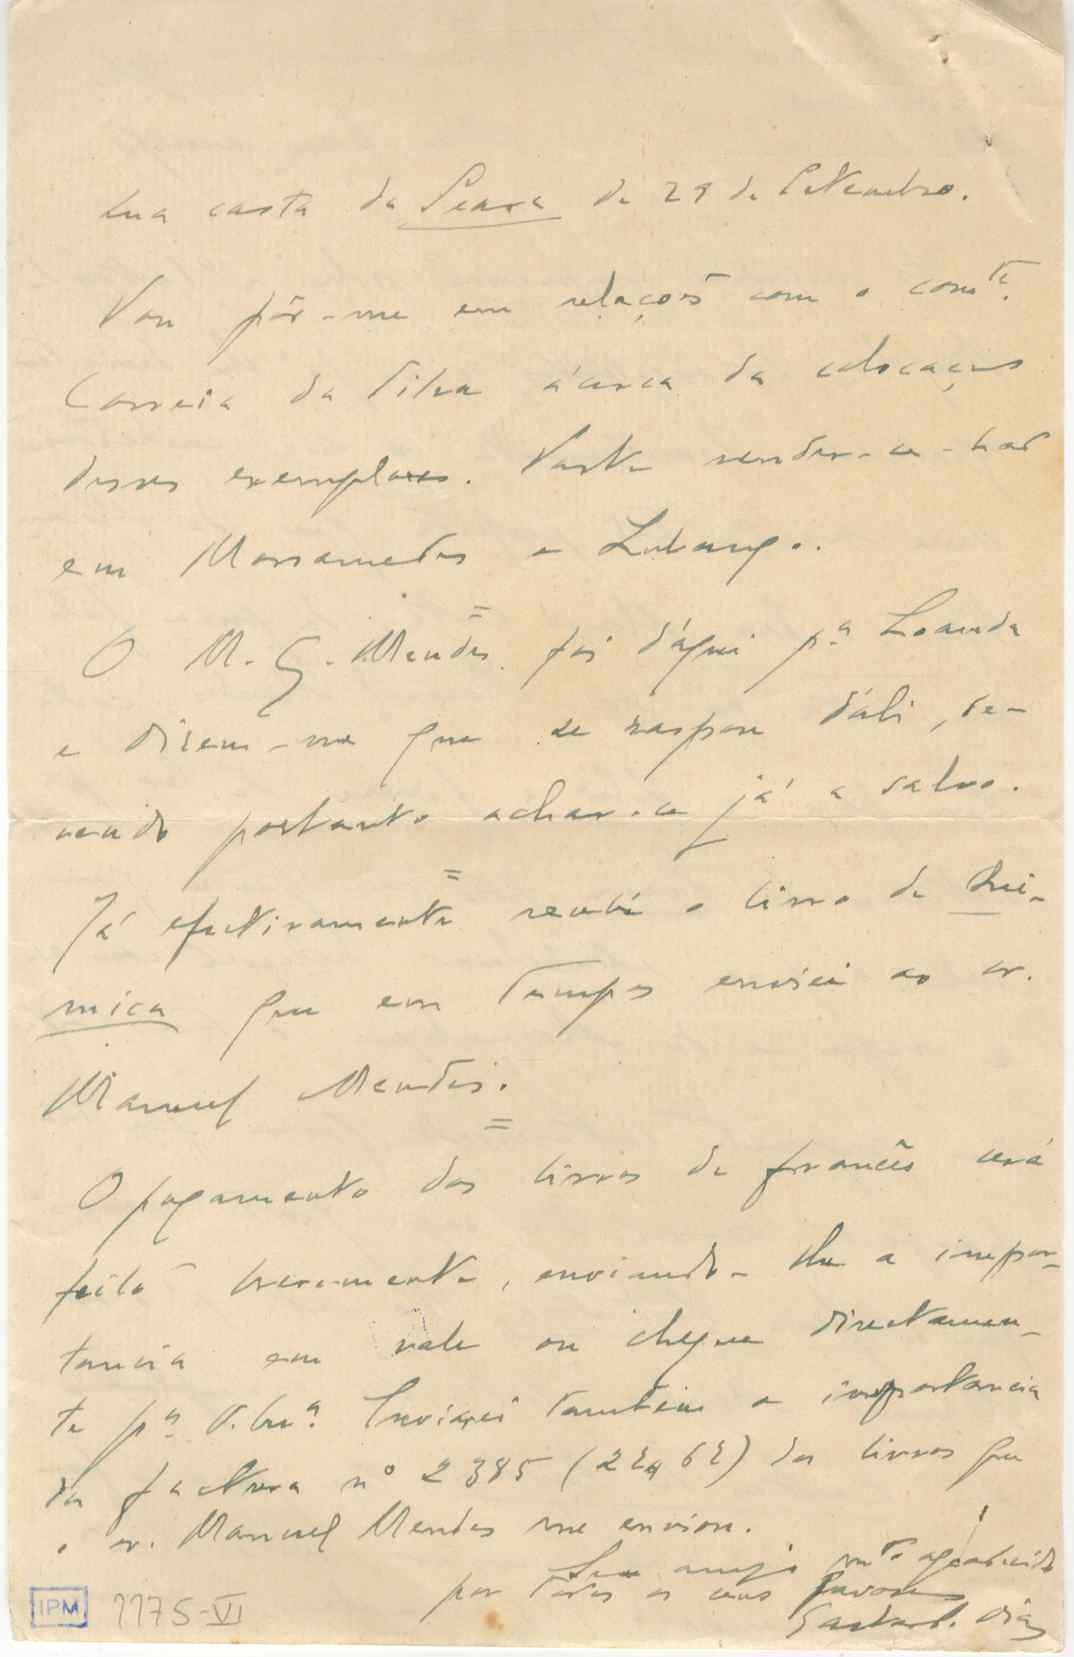 sua carta da Seara de 29 de Setembro.
Vou pôr-me em relações com o com.te
Correia da Silva ácerca da colocação
desses exemplares. vender-se-hão
em Mossamedes e Lubango.
=
O M. G. Mendes foi d'aqui p.a Loanda
e dizem-me que se raspou d'ali, de-
vendo portanto achar-se já a salvo.
=
Já efectivamente recebi o livro de Qui-
mica que em tempos enviei ao sr.
Manuel Mendes.
=
O pagamento dos livros de francês será
feito brevemente, enviando-lhe a impor-
tancia em vale ou cheque directamen-
te p.a V. Enviarei tambem a importancia
da factura nº 2385 dos livros que
o sr. Manuel Mendes me enviou.
Seu amigo m.to agradecido
por todos os seus favores
Gastão S. Dias
IPM 1175-VI